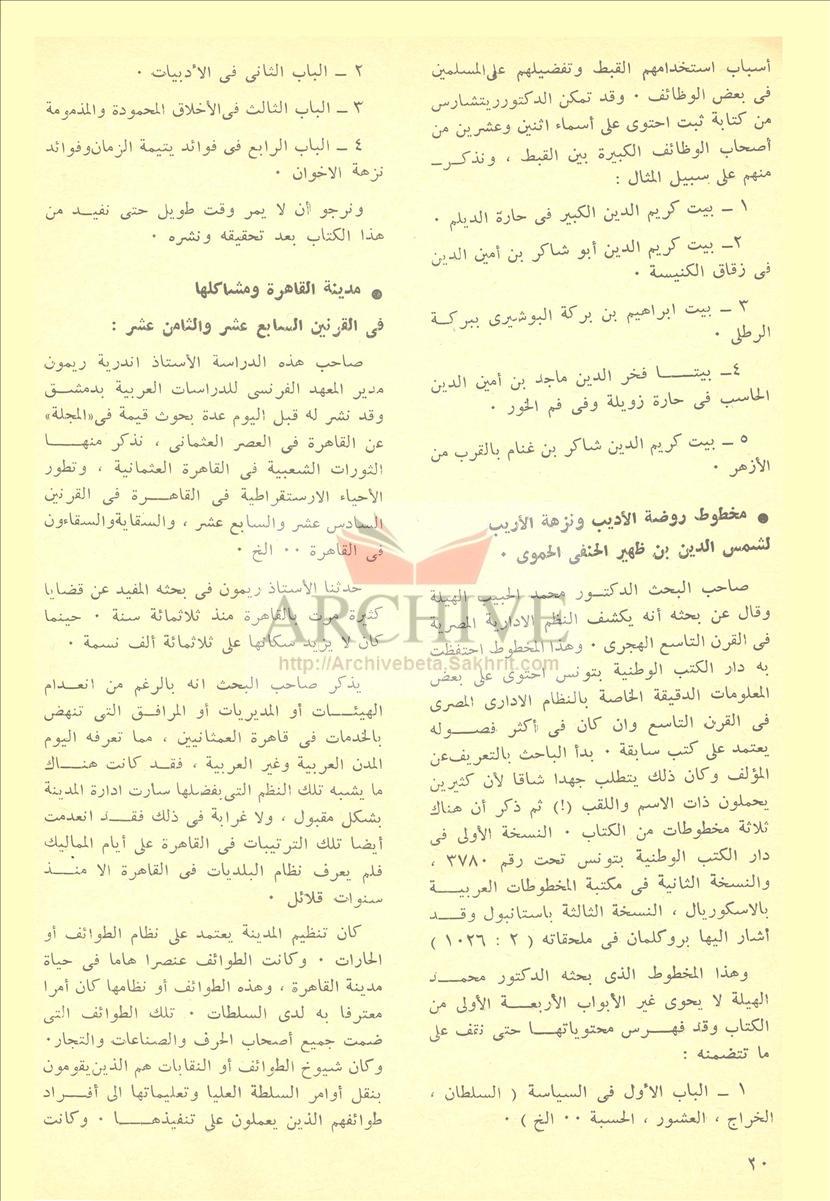 أسباب استخدامهم القبط وتفضيلهم على المسلمين
فى بعض الوظائف . وقد تمكن الدكتور ريتشارس
من كتابة ثبت احتوى على أسماء اثنين وعشرين من
أصحاب الوظائف الكبيرة بين القبط ، ونذكر
منهم على سبيل المثال :
١ ــ بيت كريم الدين الكبير فى حارة الديلم .
٢ــ بيت كريم الدين أبو شاكر بن أمين الدين
فى زقاق الكنيسة .
٣ ــ بيت ابراهيم بن بركة البوشيرى ببركة
الرطلى .
٤ــ بيتا فخر الدين ماجد بن أمين الدين
الحاسب فى حارة زويلة وفى فم الخور .
٥ ــ بيت كريم الدين شاكر بن غنام بالقرب من
الأزهر .
● مخطوط روضة الأديب ونزهة الأريب
لشمس الدين بن ظهير الحنفى الحموى .
صاحب البحث الدكتور محمد الحبيب الهيلة
وقال عن بحثه أنه يكشف النظم الادارية المصرية
فى القرن التاسع الهجرى . وهذا المخطوط احتفظت
به دار الكتب الوطنية بتونس احتوى على بعض
المعلومات الدقيقة الخاصة بالنظام الادارى المصرى
فى القرن التاسع وان كان فى أكثر فصوله
يعتمد على كتب سابقة . بدأ الباحث بالتعريف عن
المؤلف وكان ذلك يتطلب جهدا شاقا لأن كثيرين
يحملون ذات الاسم واللقب (!) ثم ذكر أن هناك
ثلاثة مخطوطات من الكتاب . النسخة الأولى فى
دار الكتب الوطنية بتونس تحت رقم ٣٧٨٠ ،
والنسخة الثانية فى مكتبة المخطوطات العربية
بالاسكوريال ، النسخة الثالثة باستانبول وقد
أشار اليها بروكلمان فى ملحقاته ( ٢ : ١٠٢٦ )
وهذا المخطوط الذى بحثه الدكتور محمد
الهيلة لا يحوى غير الأبواب الأربعة الأولى من
الكتاب وقد فهرس محتوياتها حتى نقف على
ما تتضمنه :
١ ــ الباب الأول فى السياسة ( السلطان ،
الخراج ، العشور ، الحسبة .. الخ ) .
٢ ــ الباب الثانى فى الأدبيات .
٣ ــ الباب الثالث فى الأخلاق المحمودة والمذمومة
٤ ــ الباب الرابع فى فوائد يتيمة الزمان وفوائد
نزهة الاخوان .
ونرجو أن لا يمر وقت طويل حتى نفيد من
هذا الكتاب بعد تحقيقه ونشره .
● مدينة القاهرة ومشاكلها
فى القرنين السابع عشر والثامن عشر :
صاحب هذه الدراسة الأستاذ اندرية ريمون
مدير المعهد الفرنسى للدراسات العربية بدمشق
وقد نشر له قبل اليوم عدة بحوث قيمة فى «المجلة»
عن القاهرة فى العصر العثمانى ، نذكر منها
الثورات الشعبية فى القاهرة العثمانية ، وتطور
الأحياء الارستقراطية فى القاهرة فى القرنين
السادس عشر والسابع عشر ، والسقاية والسقاءون
فى القاهرة .. الخ .
حدثنا الأستاذ ريمون فى بحثه المفيد عن قضايا
كثيرة مرت بالقاهرة منذ ثلاثمائة سنة . حينما
كان لا يزيد سكانها على ثلاثمائة ألف نسمة .
يذكر صاحب البحث انه بالرغم من انعدام
الهيئات أو المديريات أو المرافق التى تنهض
بالخدمات فى قاهرة العمثانيين ، مما تعرفه اليوم
المدن العربية وغير العربية ، فقد كانت هناك
ما يشبه تلك النظم التى بفضلها سارت ادارة المدينة
بشكل مقبول ، ولا غرابة فى ذلك فقد انعدمت
أيضا تلك الترتيبات فى القاهرة على أيام المماليك
فلم يعرف نظام البلديات فى القاهرة الا منذ
سنوات قلائل .
كان تنظيم المدينة يعتمد على نظام الطوائف أو
الحارات . وكانت الطوائف عنصرا هاما فى حياة
مدينة القاهرة ، وهذه الطوائف أو نظامها كان أمرا
معترفا به لدى السلطات . تلك الطوائف التى
ضمت جميع أصحاب الحرف والصناعات والتجار .
وكان شيوخ الطوائف أو النقابات هم الذين يقومون
بنقل أوامر السلطة العليا وتعليماتها الى أفراد
طوائفهم الذين يعملون على تنفيذها . وكانت
٢٠
ARCHIVE
http://Archivebeta.Sakhrit.com